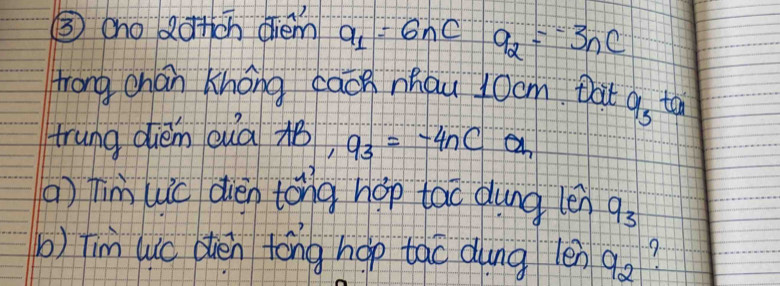 ③ Cho 2đtích điểm q₁ = 6nC q₂ = -3nC
trong chân không cách nhau 10cm. Đặt q₃ tại
trung điểm của AB, q₃ = -4nC
a) Tìm lực điện tổng hợp tác dụng lên q₃
b) Tìm lực điện tổng hợp tác dụng lên q₂?